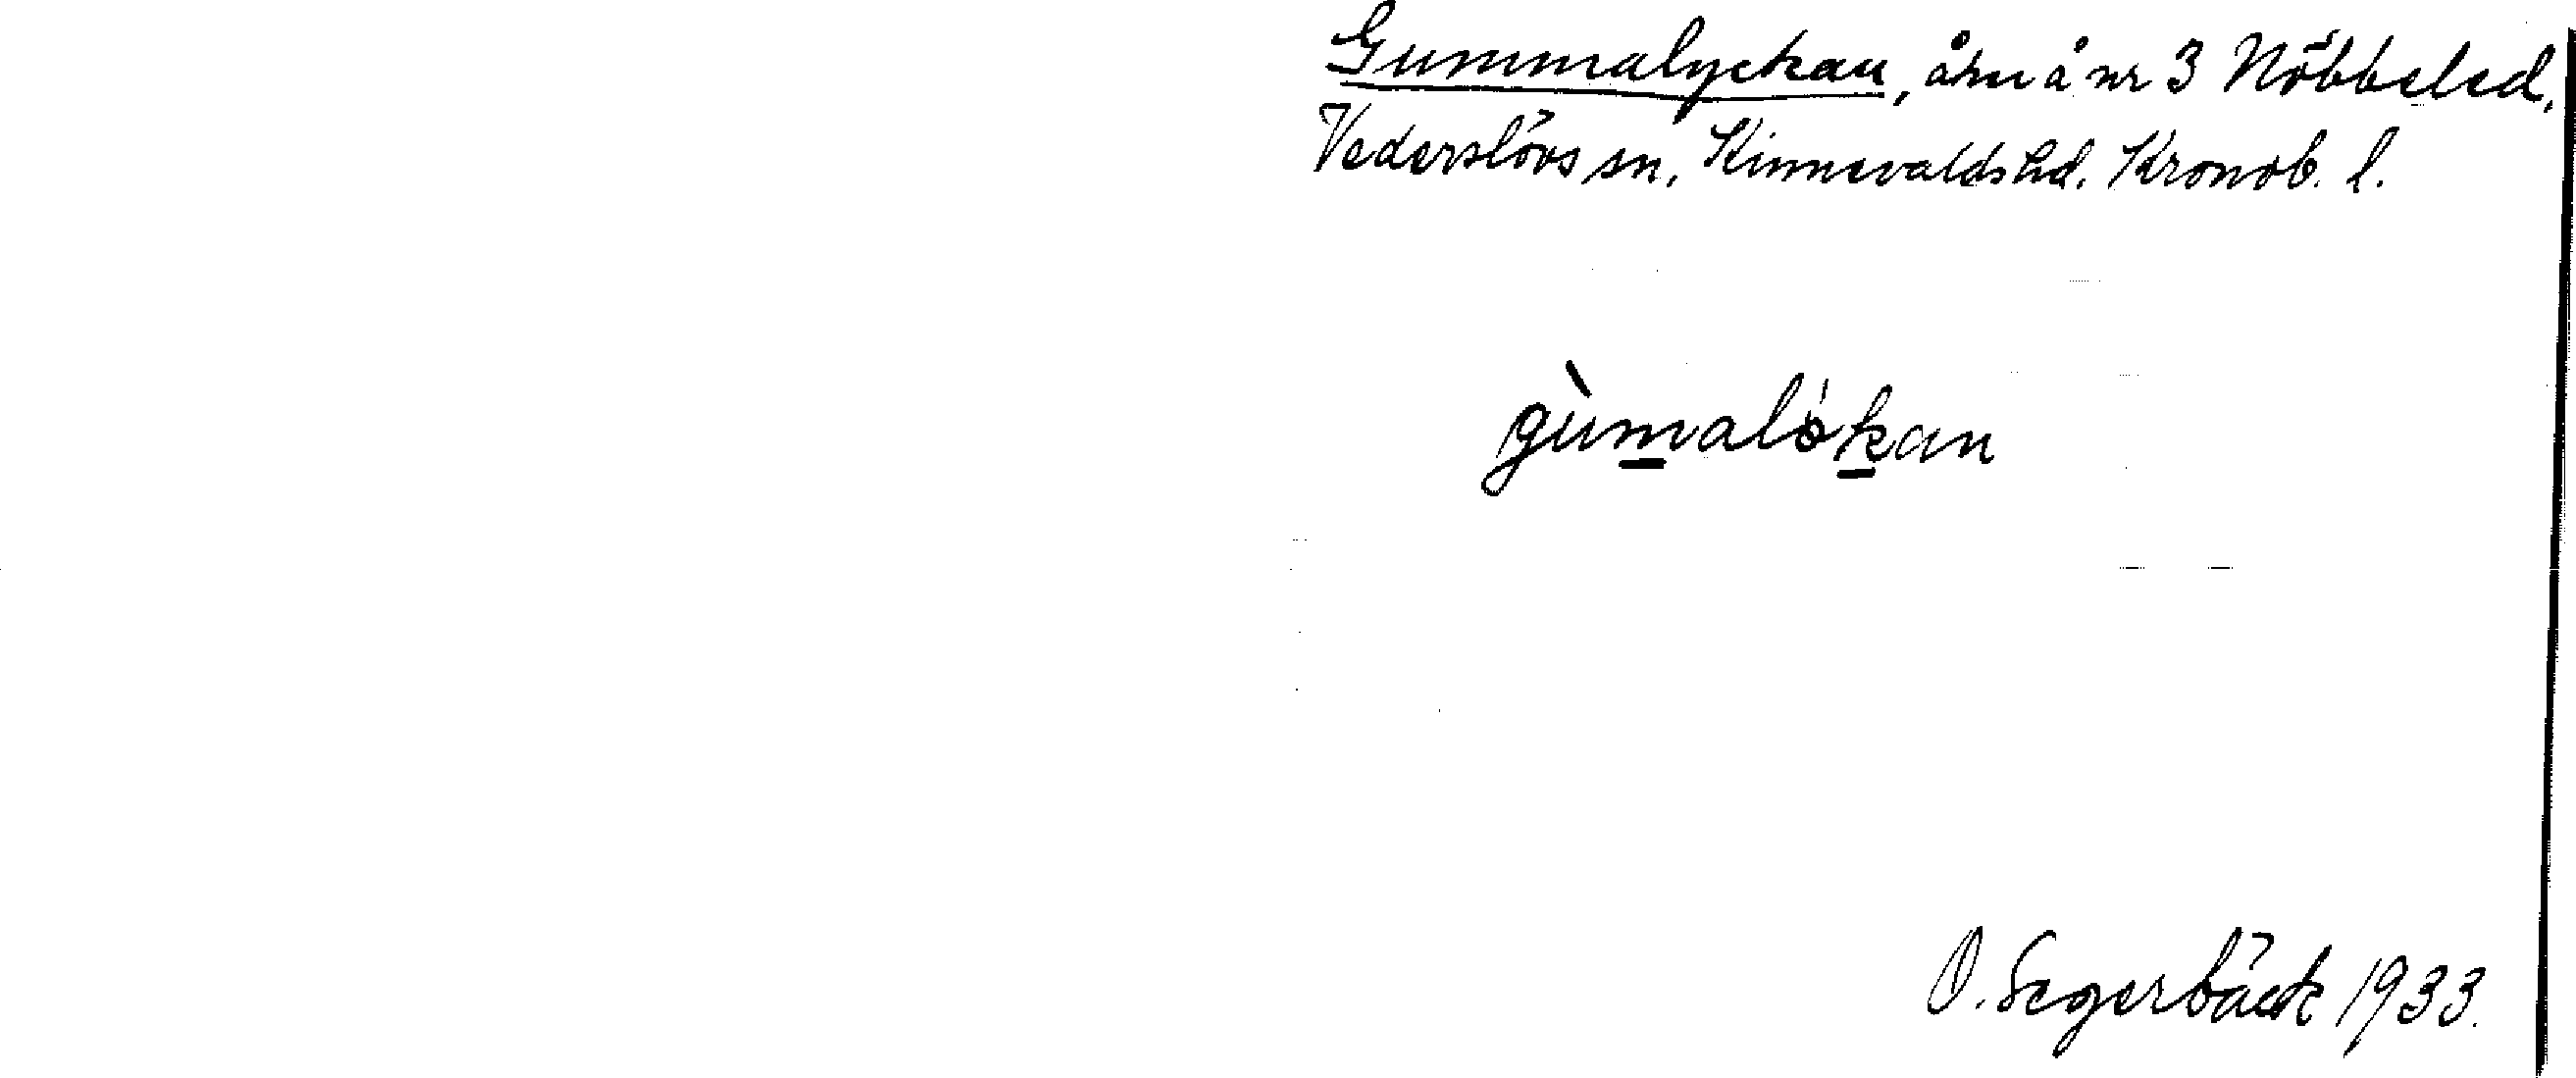 Gummalyckan, åker å nr 3 Nöbbeled,
Vederslövs sn, Kinnevalds hd. Kronob. l.
gùmalókan
O. Segerbäck 1933.